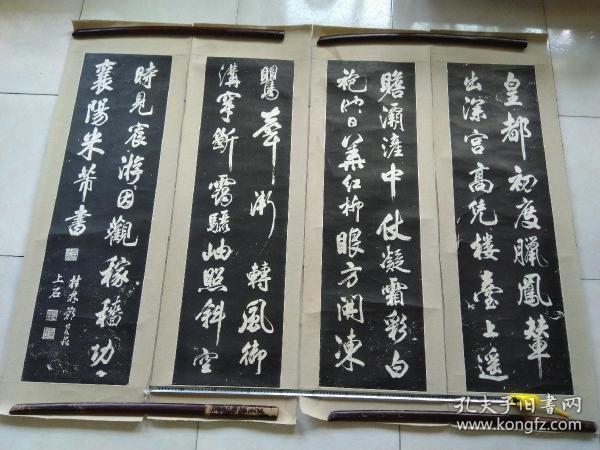 皇都初度臘鳳輦
出深宫高凭樓臺上遥
瞻灞滻中仗凝霜彩白
袍映日華紅柳眼方開凍
鸎聲漸轉風御
溝穿斷靄驪岫照斜空
時見宸游因觀稼穡功
襄陽米芾書
桂林
上石
孔夫子旧书网
www.kongfz.com